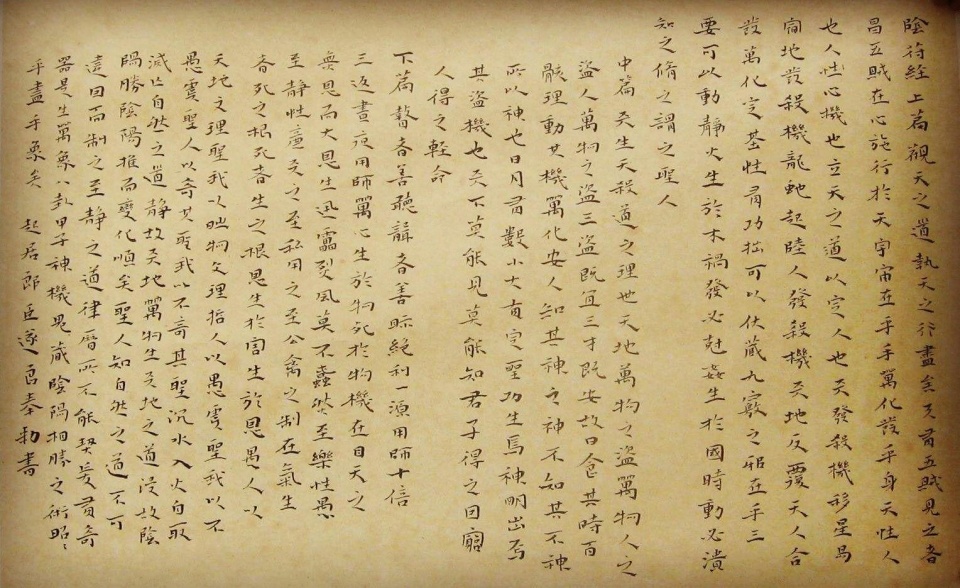 陰符經上篇觀天之道執天之行盡矣天有五賊見之者
昌五賊在心施行於天宇宙在乎手萬化發乎身天性人
也人性心機也立天之道以定人也天發殺機移星易
宿地發殺機龍虵起陸人發殺機天地反覆天人合
發萬化定基性有功拙可以伏藏九竅之邪在乎三
要可以動靜火生於木禍發必尅姦生於國時動必潰
知之脩之謂之聖人
中篇天生天殺道之理也天地萬物之盜萬物人之
盜人萬物之盜三盜既宜三才既安故曰食其時百
骸理動其機萬化安人知其神之神不知其不神
所以神也日月有數小大有定聖功生焉神明出焉
其盜機也天下莫能見莫能知君子得之固窮
人得之輕命
下篇瞽者善聽聾者善視絕利一源用師十倍
三返晝夜用師萬心生於物死於物機在目天之
無恩而大恩生迅雷烈風莫不蠢然至樂性愚
至靜性廉天之至私用之至公禽之制在氣生
者死之根死者生之根恩生於害害生於恩愚人以
天地之理聖我以時物文理哲人以愚虞聖我以不
愚虞聖人以奇其聖我以不奇其聖沉水入火自取
滅亡自然之道靜故天地萬物生天地之道浸故陰
陽勝陰陽推而變化順矣聖人知自然之道不可
違因而制之至靜之道律曆所不能契爰有奇
器是生萬象八卦甲子神機鬼藏陰陽相勝之術昭昭
乎盡乎象矣 起居郎臣遂良奉勑書